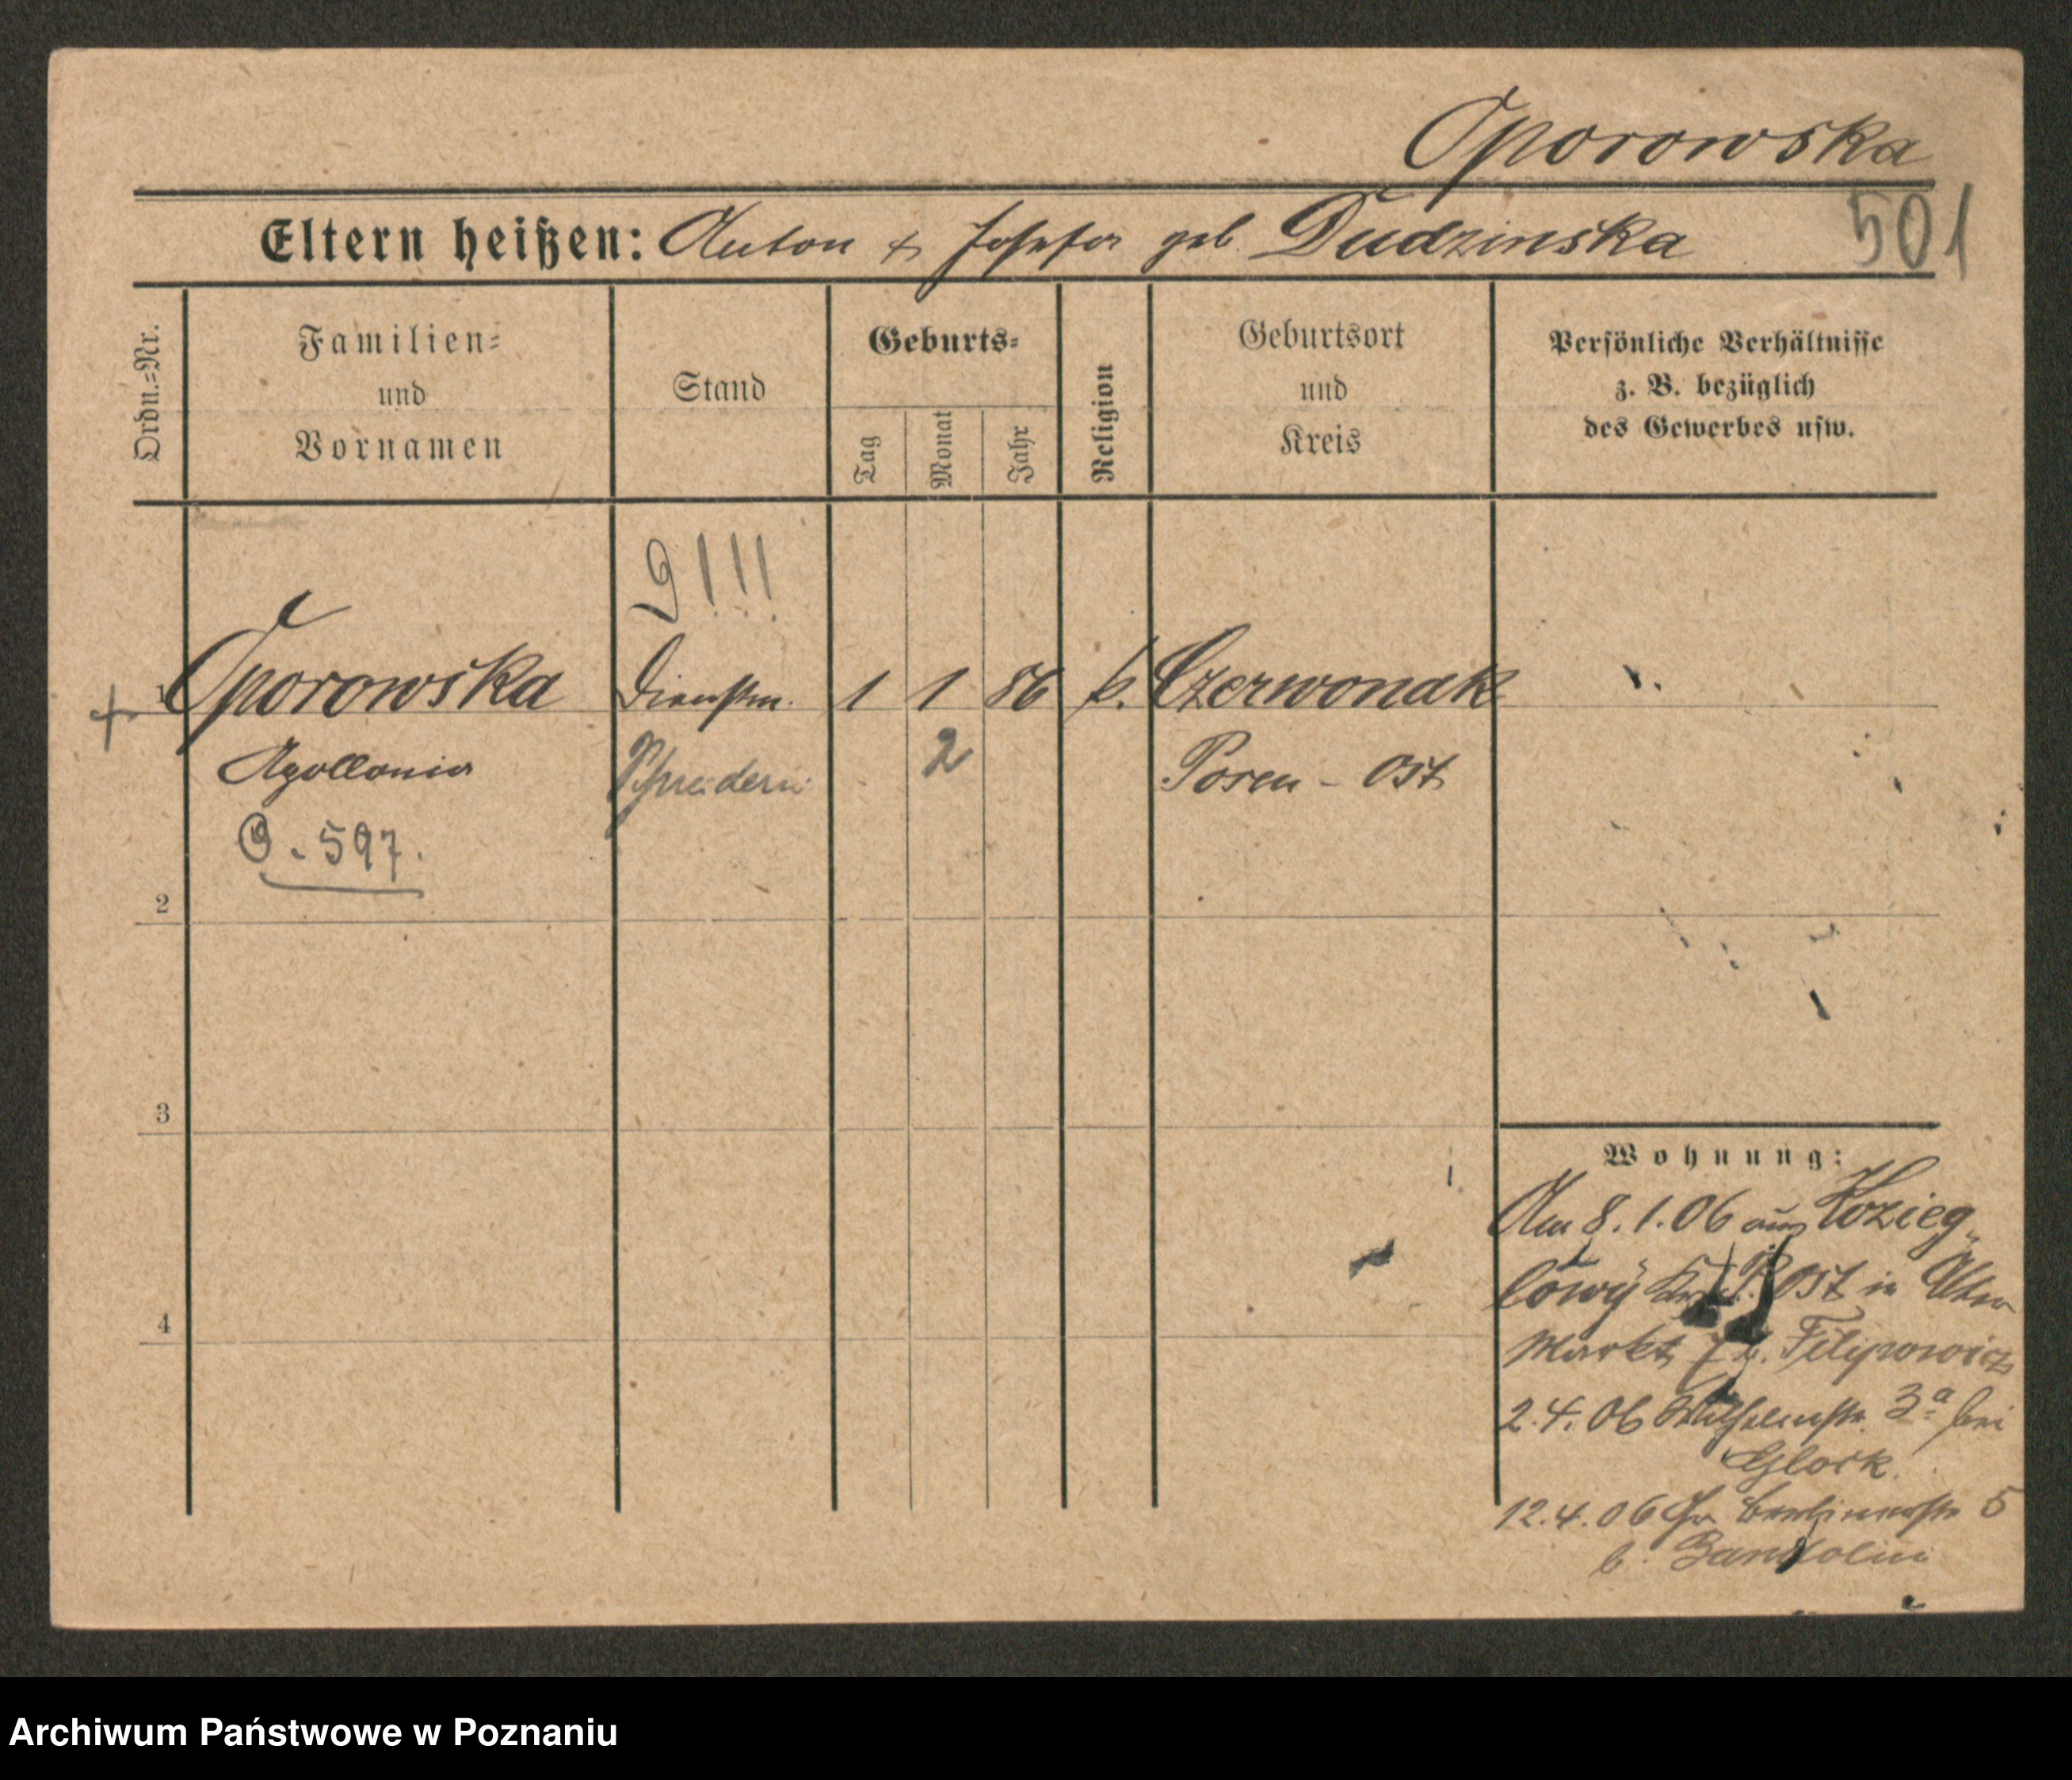 Oporowska
501
Eltern heißen: Anton & Josefa geb. Dudzinska
Ordn.-Nr.
Familien-
und
Vornamen
Stand
Geburts-
Tag
Monat
Jahr
Religion
Geburtsort
und
Kreis
Persönliche Verhältnisse
z. B. bezüglich
des Gewerbes usw.
9!!!
1 Oporowska Dienstm. 1 1 86 k. Czerwonak
Apollonia 2 Posen - Ost
597.
2
3
4
Wohnung:
Am 8.1.06 aus Kozieg
lowy Kr. P. Ost in Alter
Markt b. Filipowicz
2.4.06 Wilhelmstr. 3a bei
Glock.
12.4.06 Gr. Berlinerstr 5
b.
Archiwum Państwowe w Poznaniu